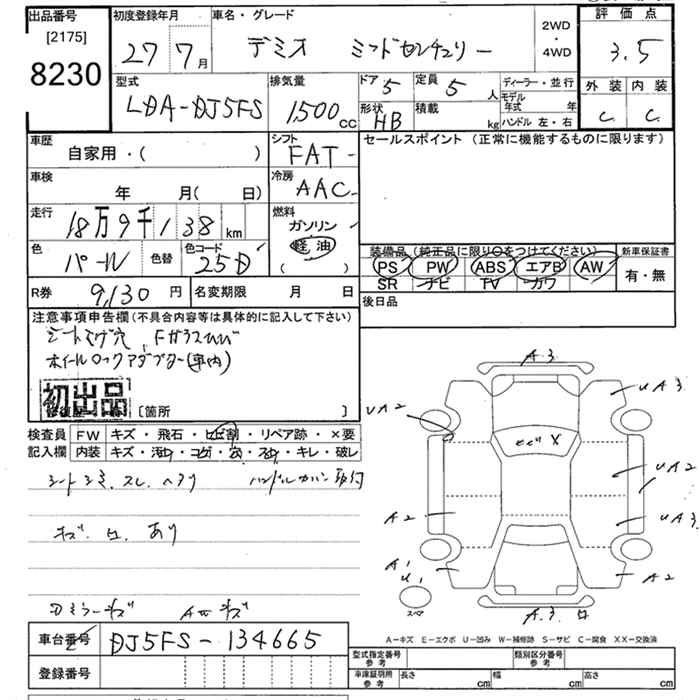 出品番号 初度登録年月 車名・グレード 評価点
[2175]
8230
27 7月 デミオ ミッドセンチュリー
2WD
・
4WD
3.5
外装 内装
C C
型式 排気量 ドア 定員 ディーラー・並行
LDA-DJ5FS 1,500cc 5 5人
形状 積載 モデル年式 年
HB kg ハンドル 左・右
車歴 シフト セールスポイント(正常に機能するものに限ります)
自家用・( ) FAT
車検 冷房
年 月( 日) AAC
走行 燃料
18万9千138km ガソリン
軽油
( )
色 色替 色コード
パール 25D
装備品(純正品に限り○をつけてください) 新車保証書
PS PW ABS エアB AW 有・無
SR ナビ TV カワ
R券 9,130円 名変期限 月 日 後日品
注意事項申告欄(不具合内容等は具体的に記入して下さい)
シートコゲ穴 Fガラスひび
ホイールロックアダプター(車内)
初出品
[箇所 ]
検査員 FW キズ・飛石・ヒビ割・リペア跡・×要
記入欄 内装 キズ・汚れ・コゲ・穴・スレ・キレ・破レ
シートシミ、スレ、ヘタリ ハンドルカバー取付
キズ、凹、あり
Dミラーキズ AWキズ
A.3
UA3
UA2
ヒビ X
UA2
UA3
A2
A1
U1
A2
スマ
A.3 凹
A-キズ E-エクボ U-凹み W-補修跡 S-サビ C-腐食 XX-交換済
車台番号 DJ5FS-134665
型式指定番号 参考 類別区分番号 参考
登録番号
車庫証明用 参考 長さ cm 幅 cm 高さ cm